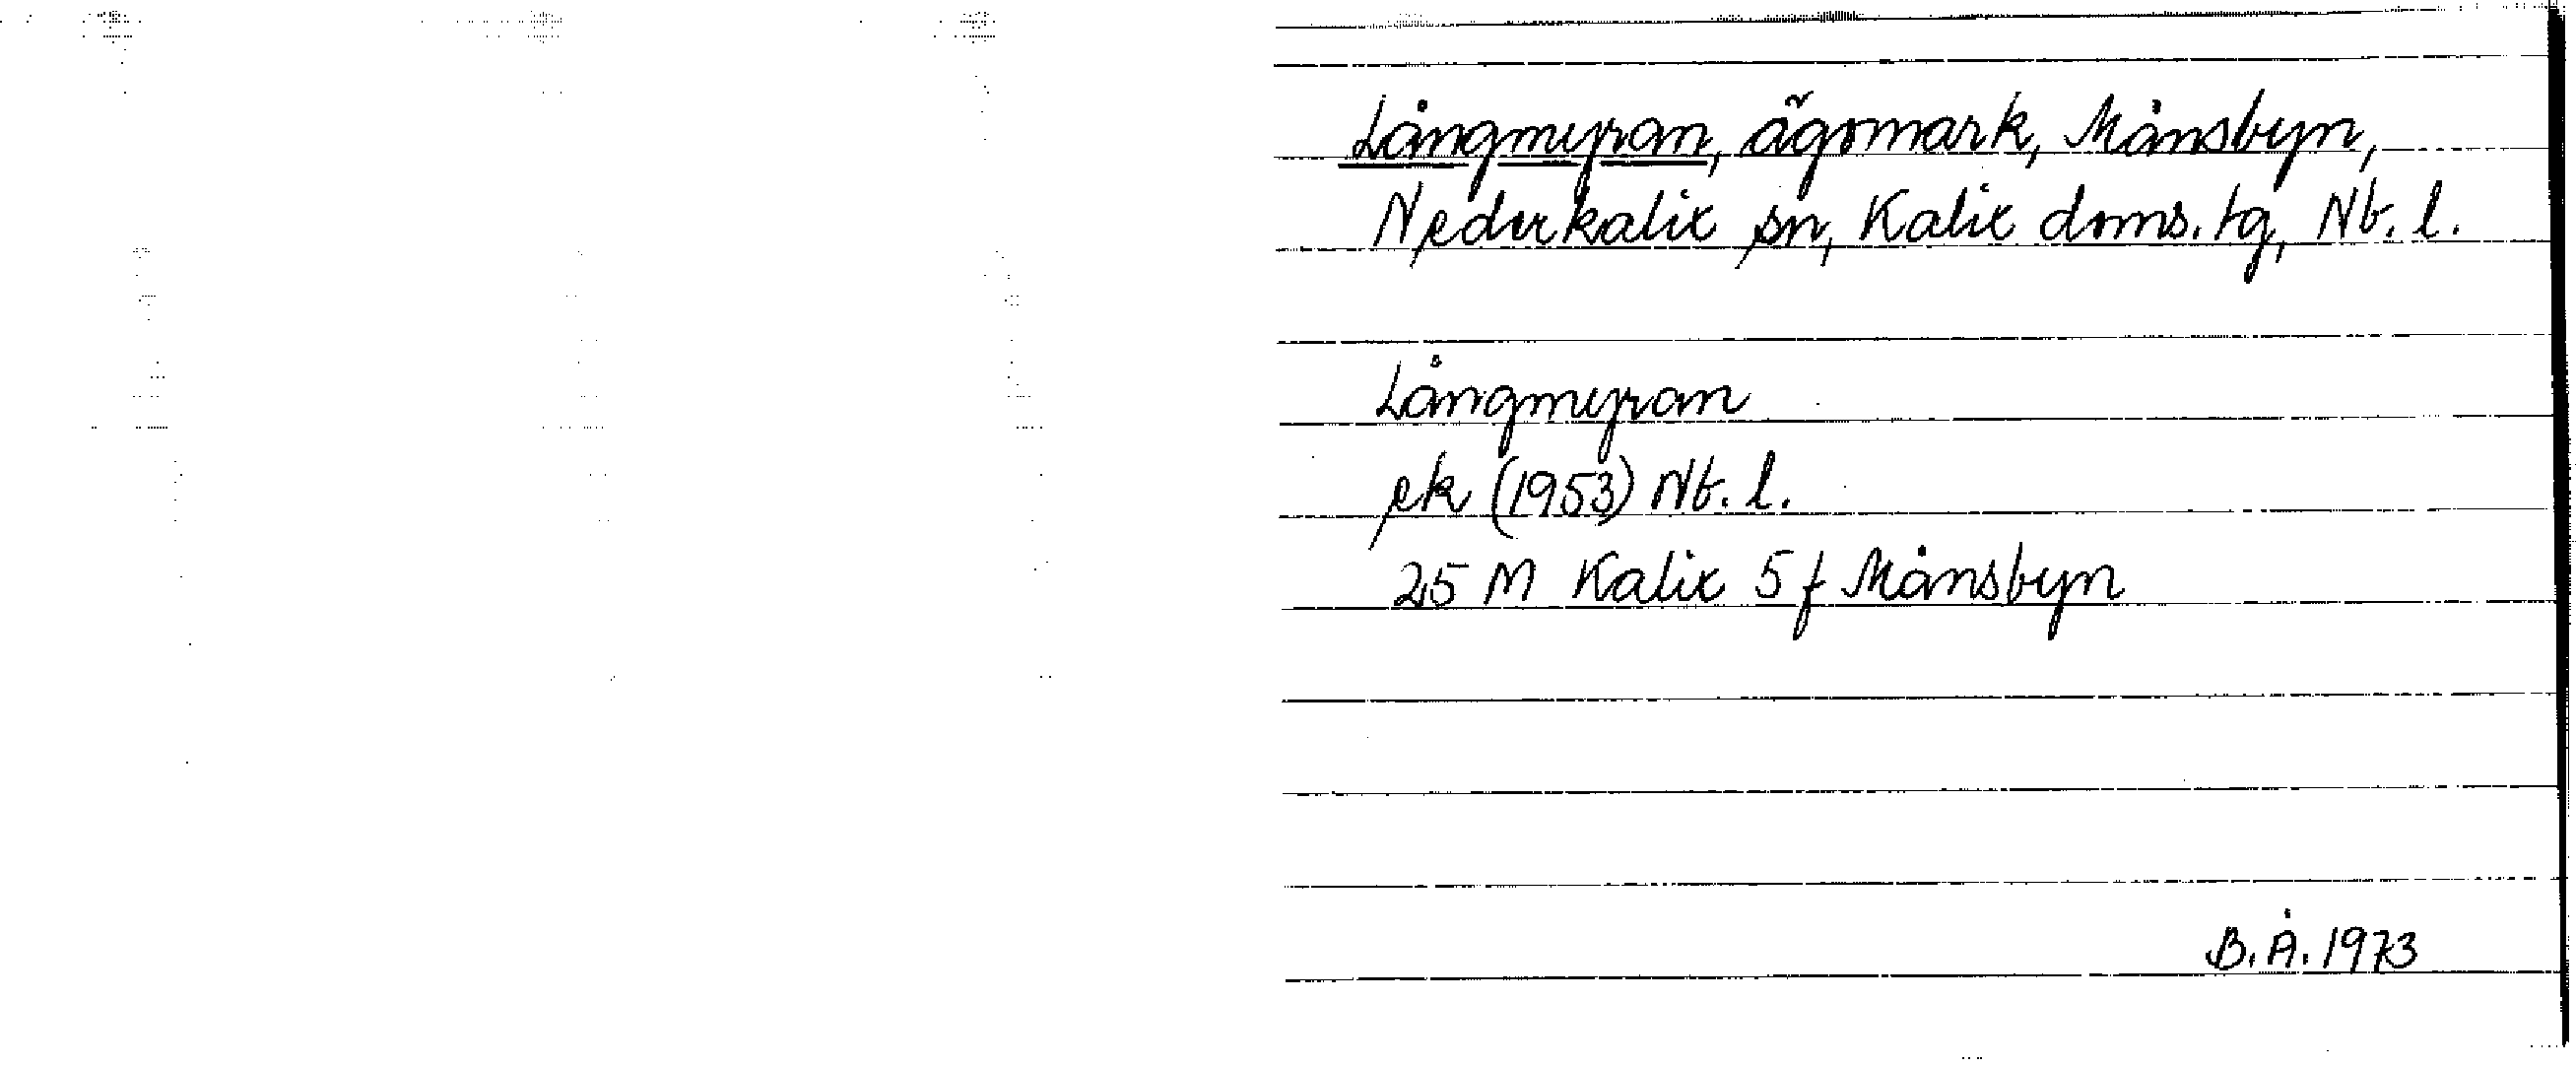 Långmyran, ägomark, Månsbyn,
Nederkalix sn, Kalix doms.tg, Nb. l.
Långmyran
ek (1953) Nb. l.
25 M Kalix 5 f Månsbyn
B.Å. 1973